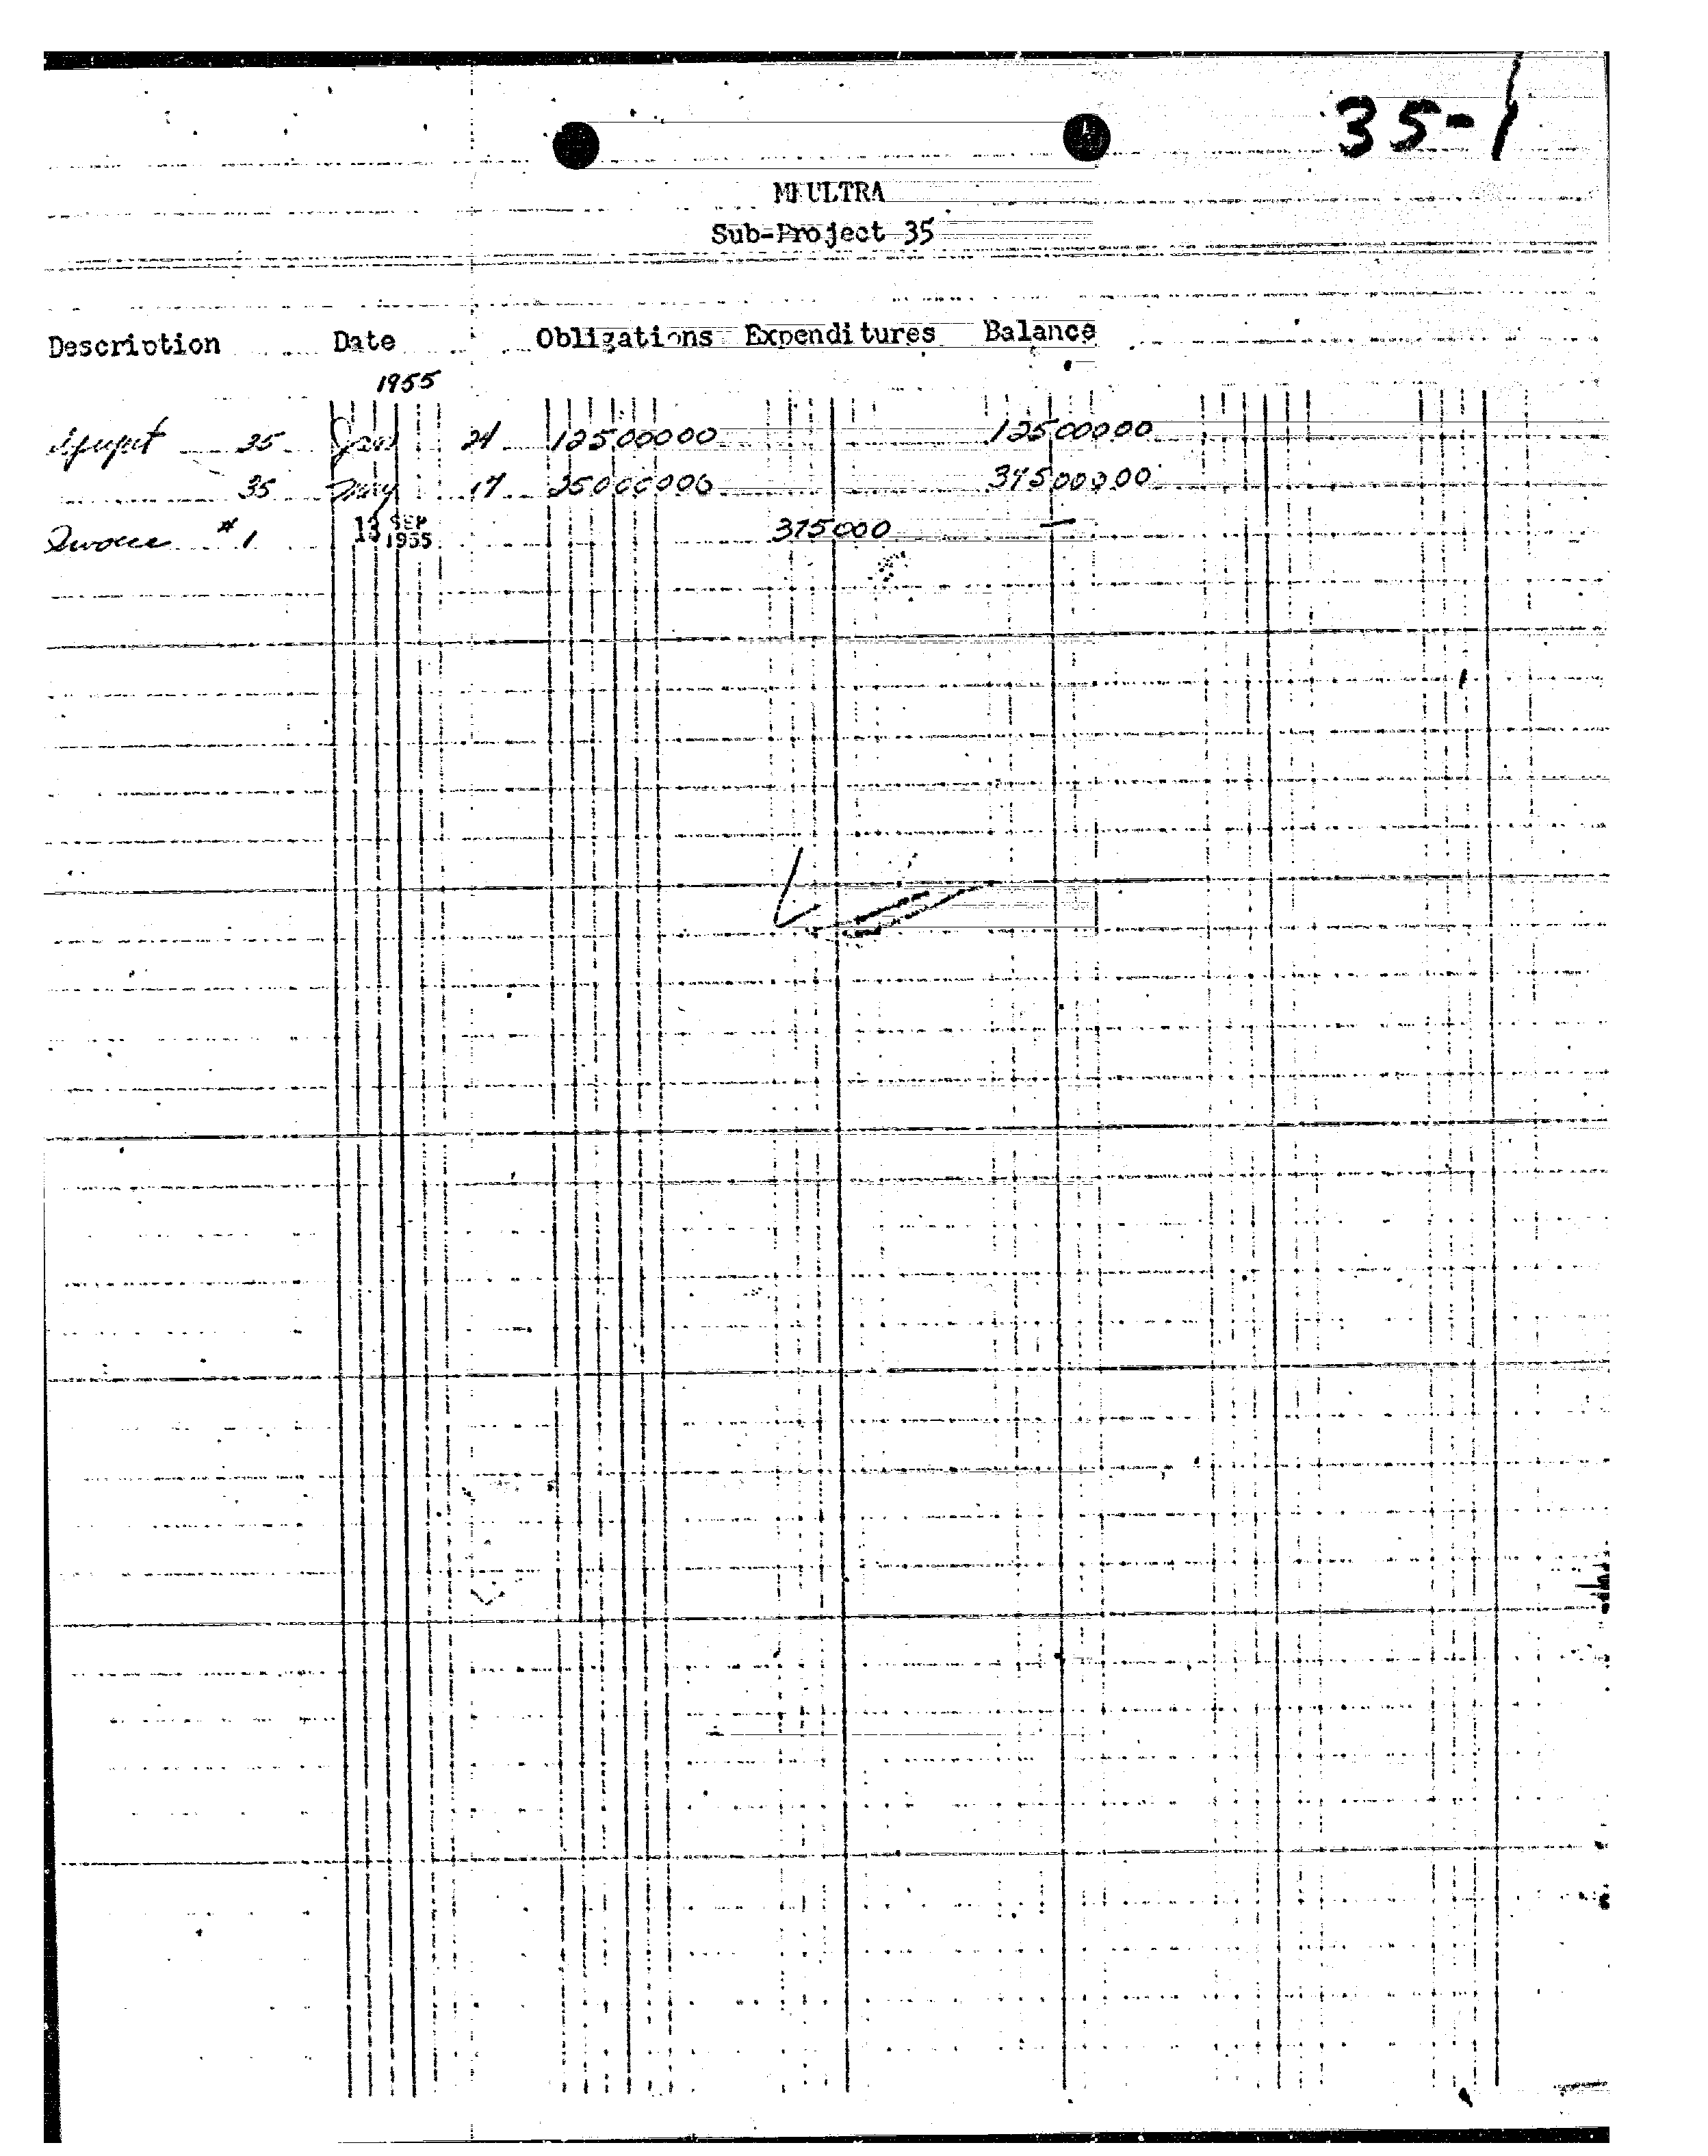 35-1
MKULTRA
Sub-Project 35
Description Date Obligations Expenditures Balance
1955
35 Jan 24 125,000 00 125,000 00
35 May 17 250,000 00 375,000 00
Invoice #1 13 SEP 1955 375000 —